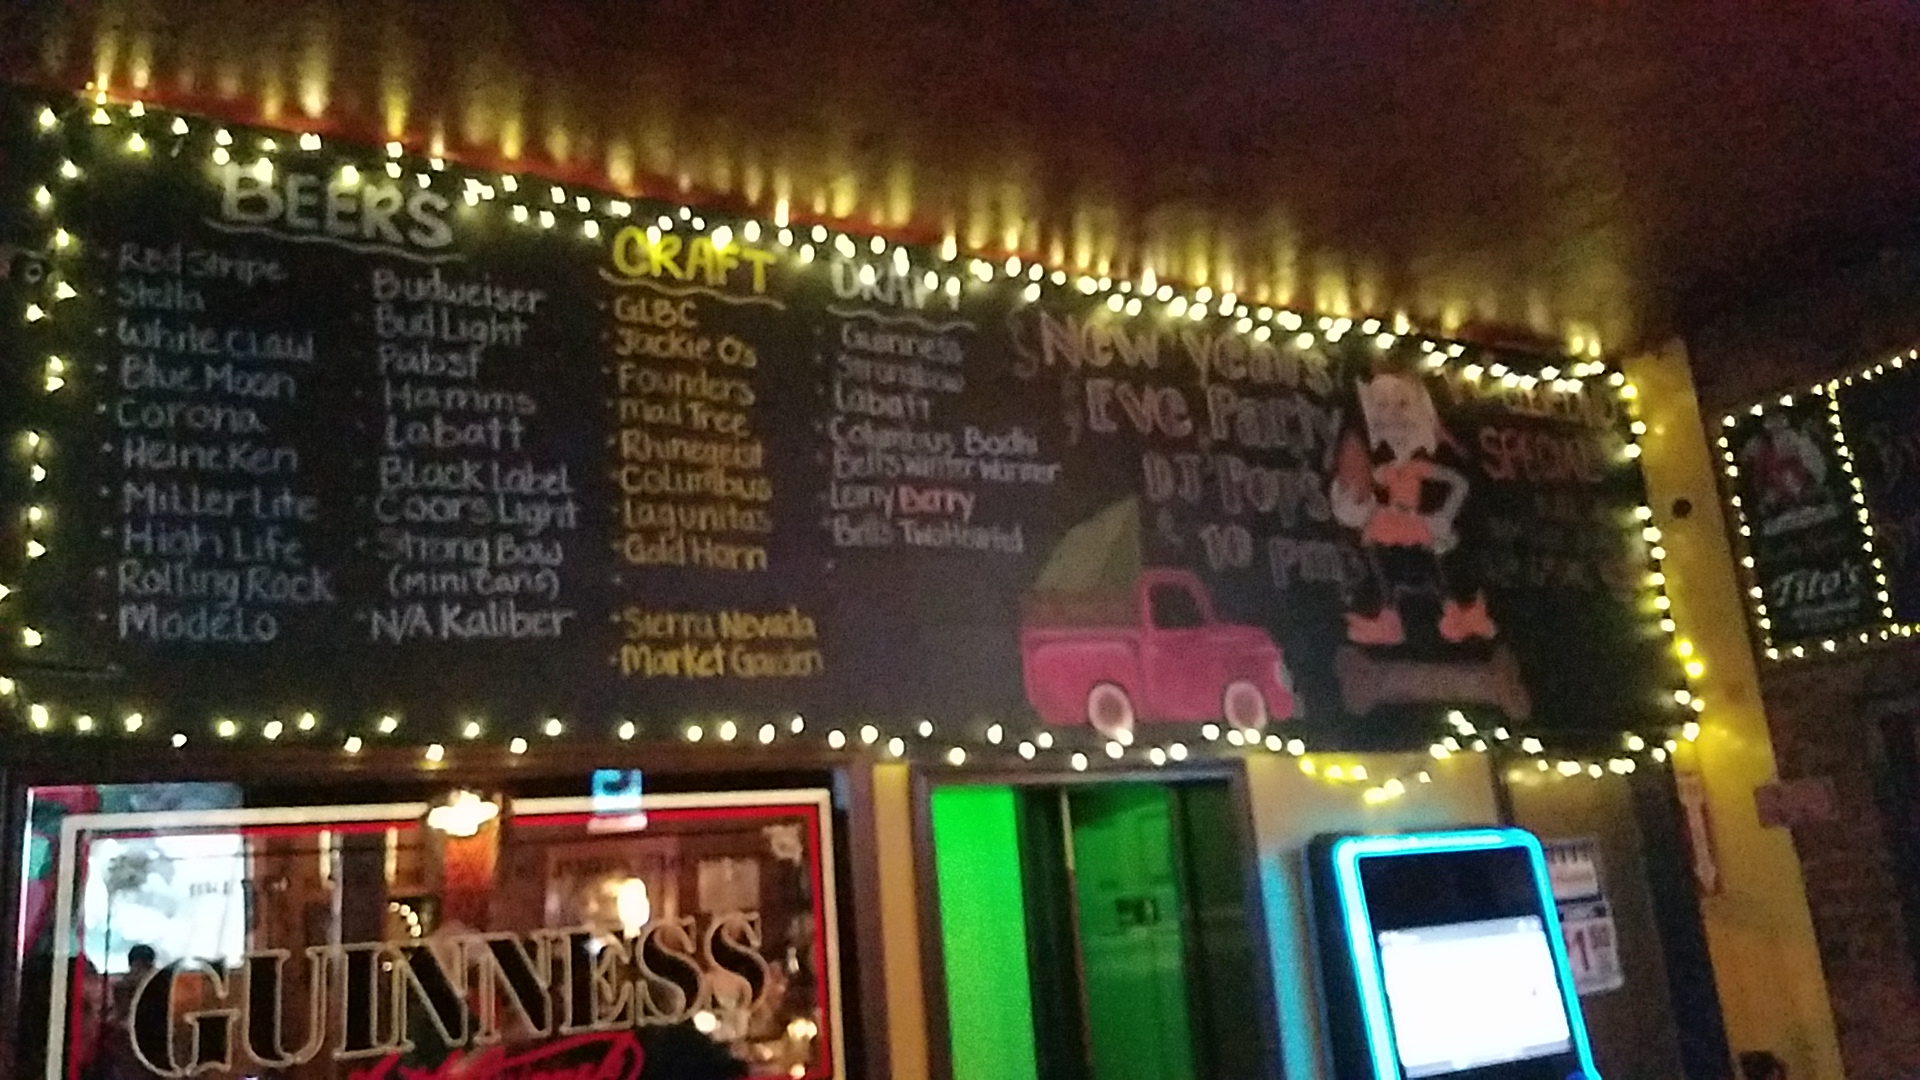 BEERS
· Red Stripe
· Stella
· White Claw
· Blue Moon
· Corona
· Heineken
· Miller Lite
· High Life
· Rolling Rock
· Modelo
· Budweiser
· Bud Light
· Pabst
· Hamms
· Labatt
· Black Label
· Coors Light
· Strong Bow
(mini cans)
· N/A Kaliber
CRAFT
· GLBC
· Jackie O's
· Founders
· Mad Tree
· Rhinegeist
· Columbus
· Lagunitas
· Gold Horn
· Sierra Nevada
· Market Garden
DRAFT
· Guinness
· Strongbow
· Labatt
· Columbus Bodhi
· Bell's Winter Warmer
· Berry
· Bell's Two Hearted
New Years
Eve Party
DJ Pops
10 pm
SPECIAL
Tito's
GUINNESS